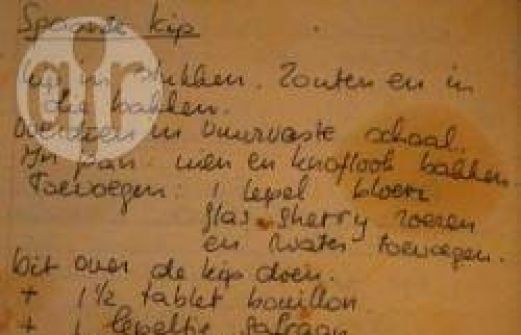 Spaanse kip
kip in stukken. Zouten en in
olie bakken.
Overdoen in vuurvaste schaal.
In pan: uien en knoflook bakken.
Toevoegen: 1 lepel bloem
glas sherry roeren
en water toevoegen.
Dit over de kip doen.
+ 1 1/2 tablet bouillon.
+ 1 lepeltje safraan